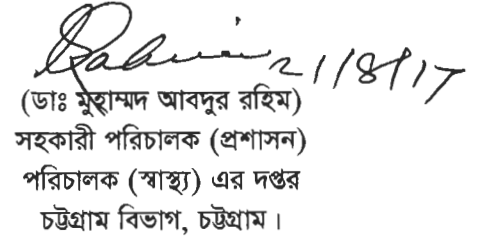 21/8/17
(ডাঃ মুহাম্মদ আবদুর রহিম)
সহকারী পরিচালক (প্রশাসন)
পরিচালক (স্বাস্থ্য) এর দপ্তর
চট্টগ্রাম বিভাগ, চট্টগ্রাম।